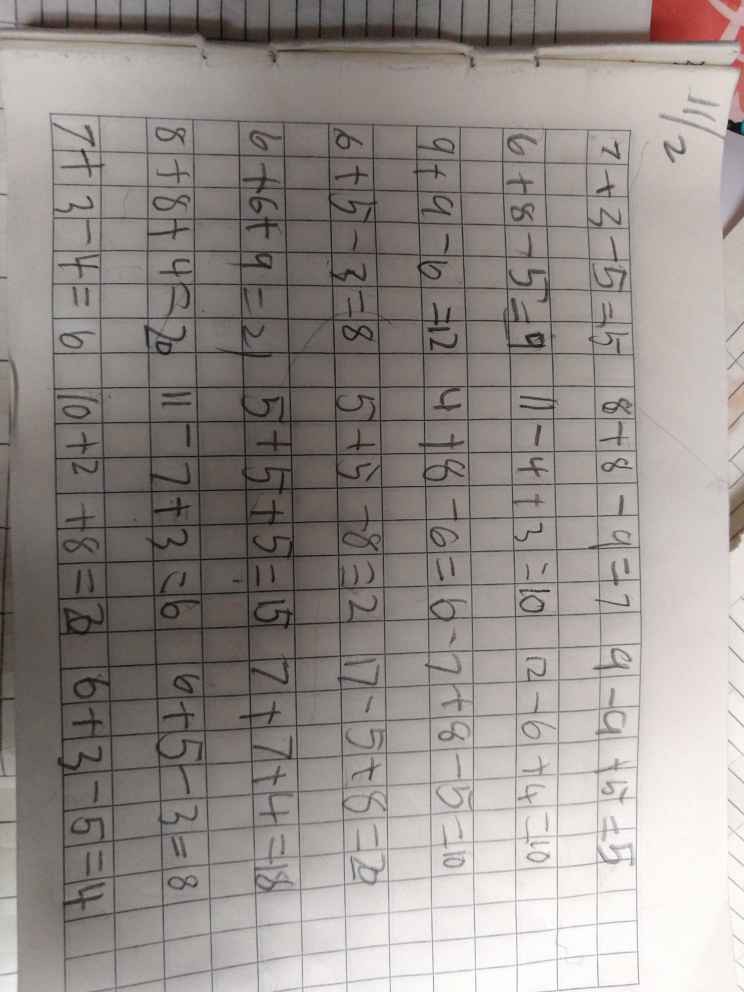 11/2
7+3-5=5 8+8-9=7 9-9+5=5
6+8-5=9 11-4+3=10 12-6+4=10
9+9-6=12 4+8-6=6 7+8-5=10
6+5-3=8 5+5-8=2 17-5+8=20
6+6+9=21 5+5+5=15 7+7+4=18
8+8+4=20 11-7+3=6 6+5-3=8
7+3-4=6 10+2+8=20 6+3-5=4